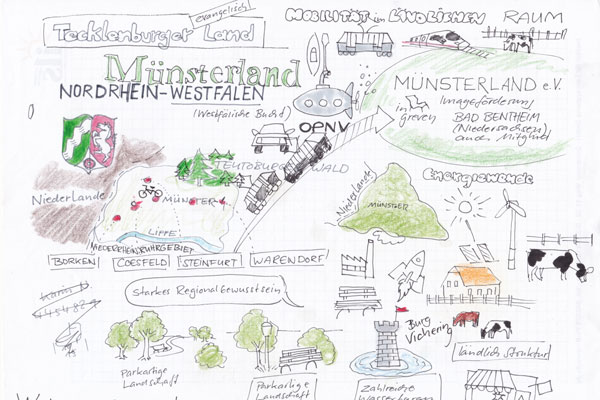 evangelisch
Tecklenburger Land
Münsterland
NORDRHEIN-WESTFALEN
(Westfälische Bucht)
MOBILITÄT im LÄNDLICHEN RAUM
ÖPNV
MÜNSTERLAND e.V.
in Greven
Imageförderung
BAD BENTHEIM
(Niedersachsen)
auch Mitglied
TEUTOBURGER WALD
Niederlande
MÜNSTER
LIPPE
NIEDERRHEIN RUHRGEBIET
BORKEN
COESFELD
STEINFURT
WARENDORF
Niederlande
MÜNSTER
Energiewende
Starkes Regionalbewusstsein
Parkartige
Landschaft
Parkartige
Landschaft
Burg
Vischering
Zahlreiche
Wasserburgen
ländlich Struktur